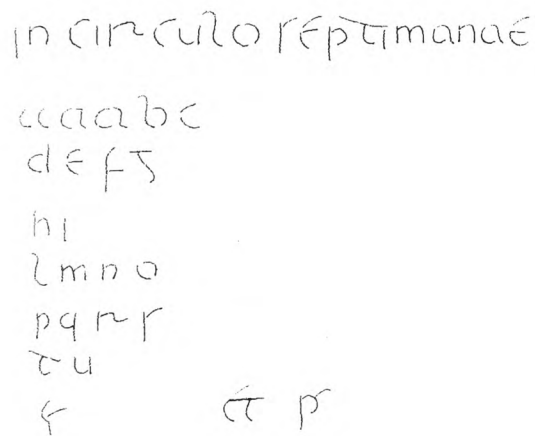 in circulo septimanae
a a a b c
d e f g
h i
l m n o
p q r s
t u